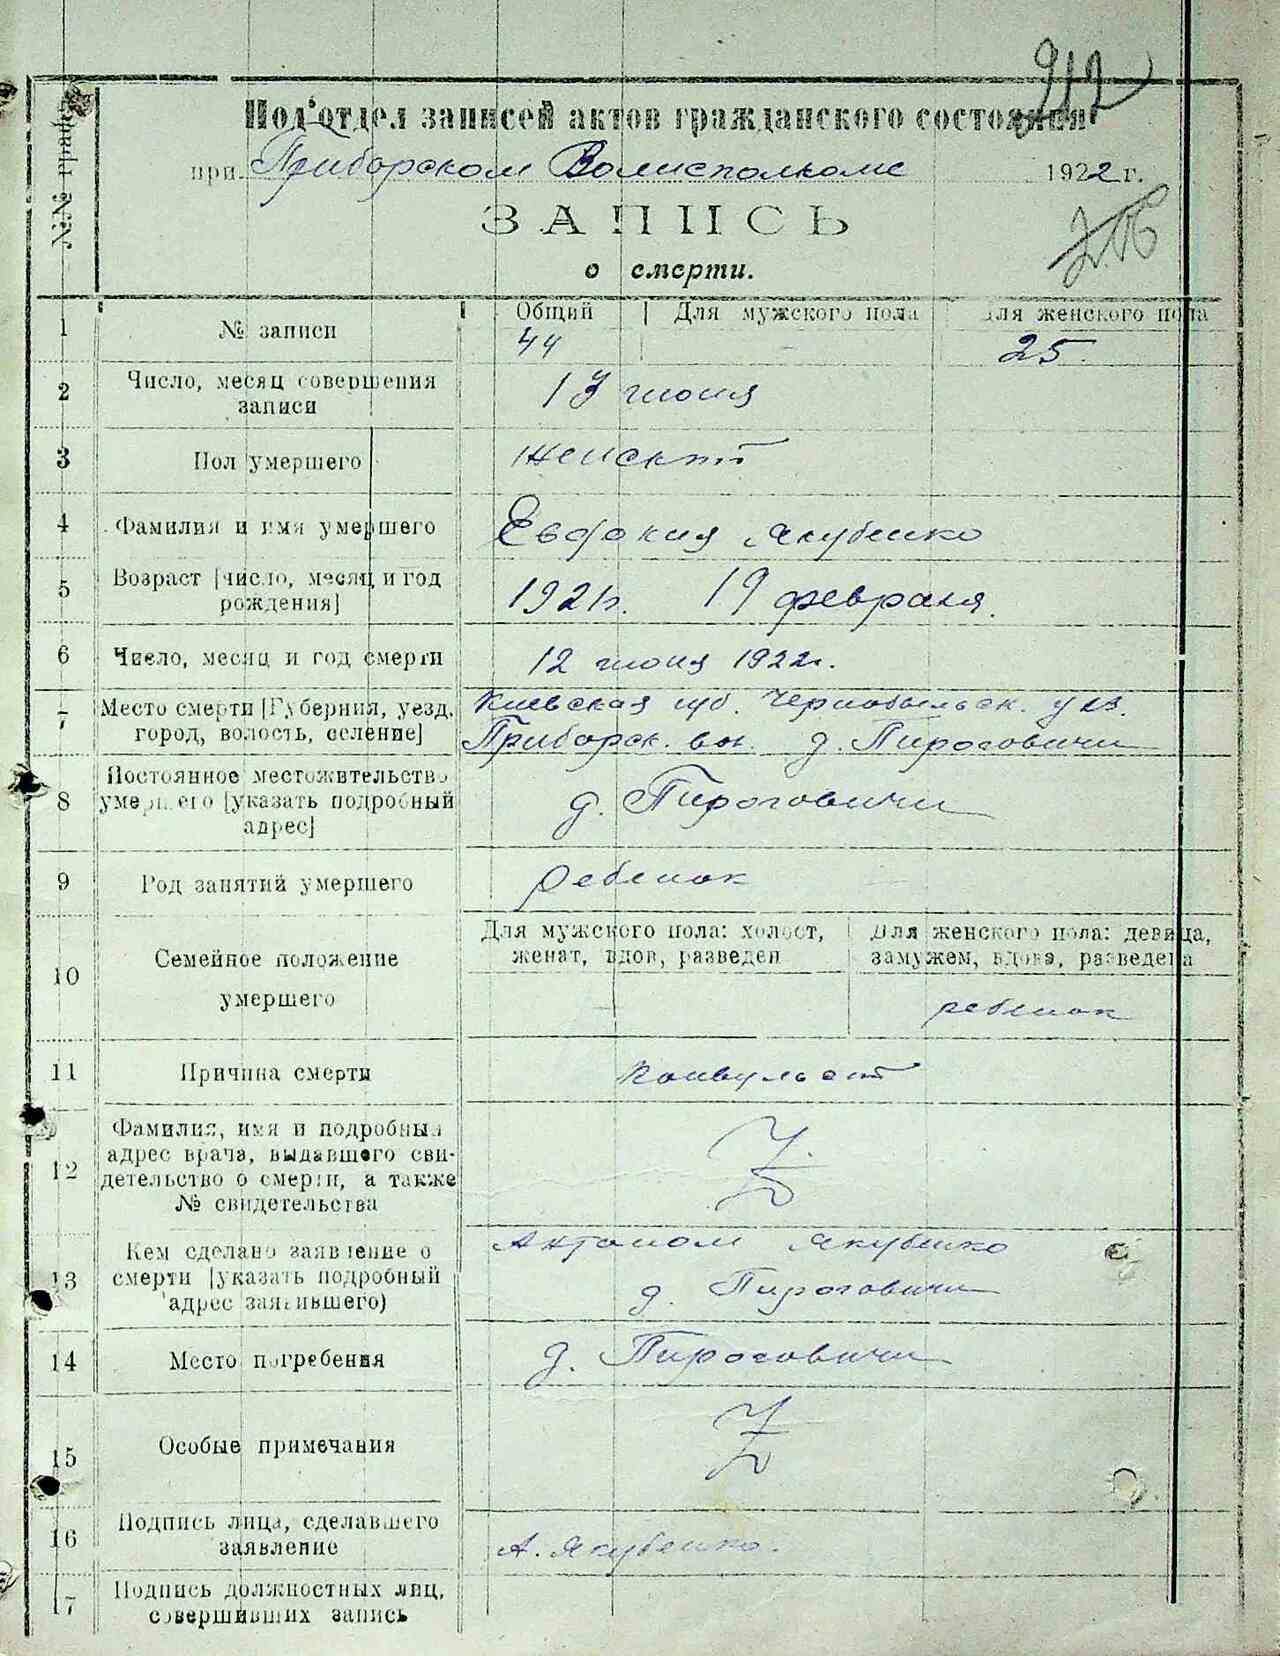 912
Под'отдел записей актов гражданского состояния
при Приборском Волисполкоме 1922 г.
ЗАПИСЬ
о смерти.
№№ граф
1 № записи Общий Для мужского пола Для женского пола
44 25.
2 Число, месяц совершения записи 13 июня
3 Пол умершего женский
4 Фамилия и имя умершего Евдокия Якубенко
5 Возраст [число, месяц и год рождения] 1921 г. 19 февраля.
6 Число, месяц и год смерти 12 июня 1922 г.
7 Место смерти [Губерния, уезд, город, волость, селение] Киевская губ. Чернобыльск. уез.
Приборск. вол. д. Пироговичи
8 Постоянное местожительство умершего [указать подробный адрес] д. Пироговичи
9 Род занятий умершего ребенок
10 Семейное положение умершего Для мужского пола: холост, женат, вдов, разведен Для женского пола: девица, замужем, вдова, разведена
ребенок
11 Причина смерти Конвульсии
12 Фамилия, имя и подробный адрес врача, выдавшего свидетельство о смерти, а также № свидетельства
13 Кем сделано заявление о смерти [указать подробный адрес заявившего) Антоном Якубенко
д. Пироговичи
14 Место погребения д. Пироговичи
15 Особые примечания
16 Подпись лица, сделавшего заявление А. Якубенко.
17 Подпись должностных лиц, совершивших запись